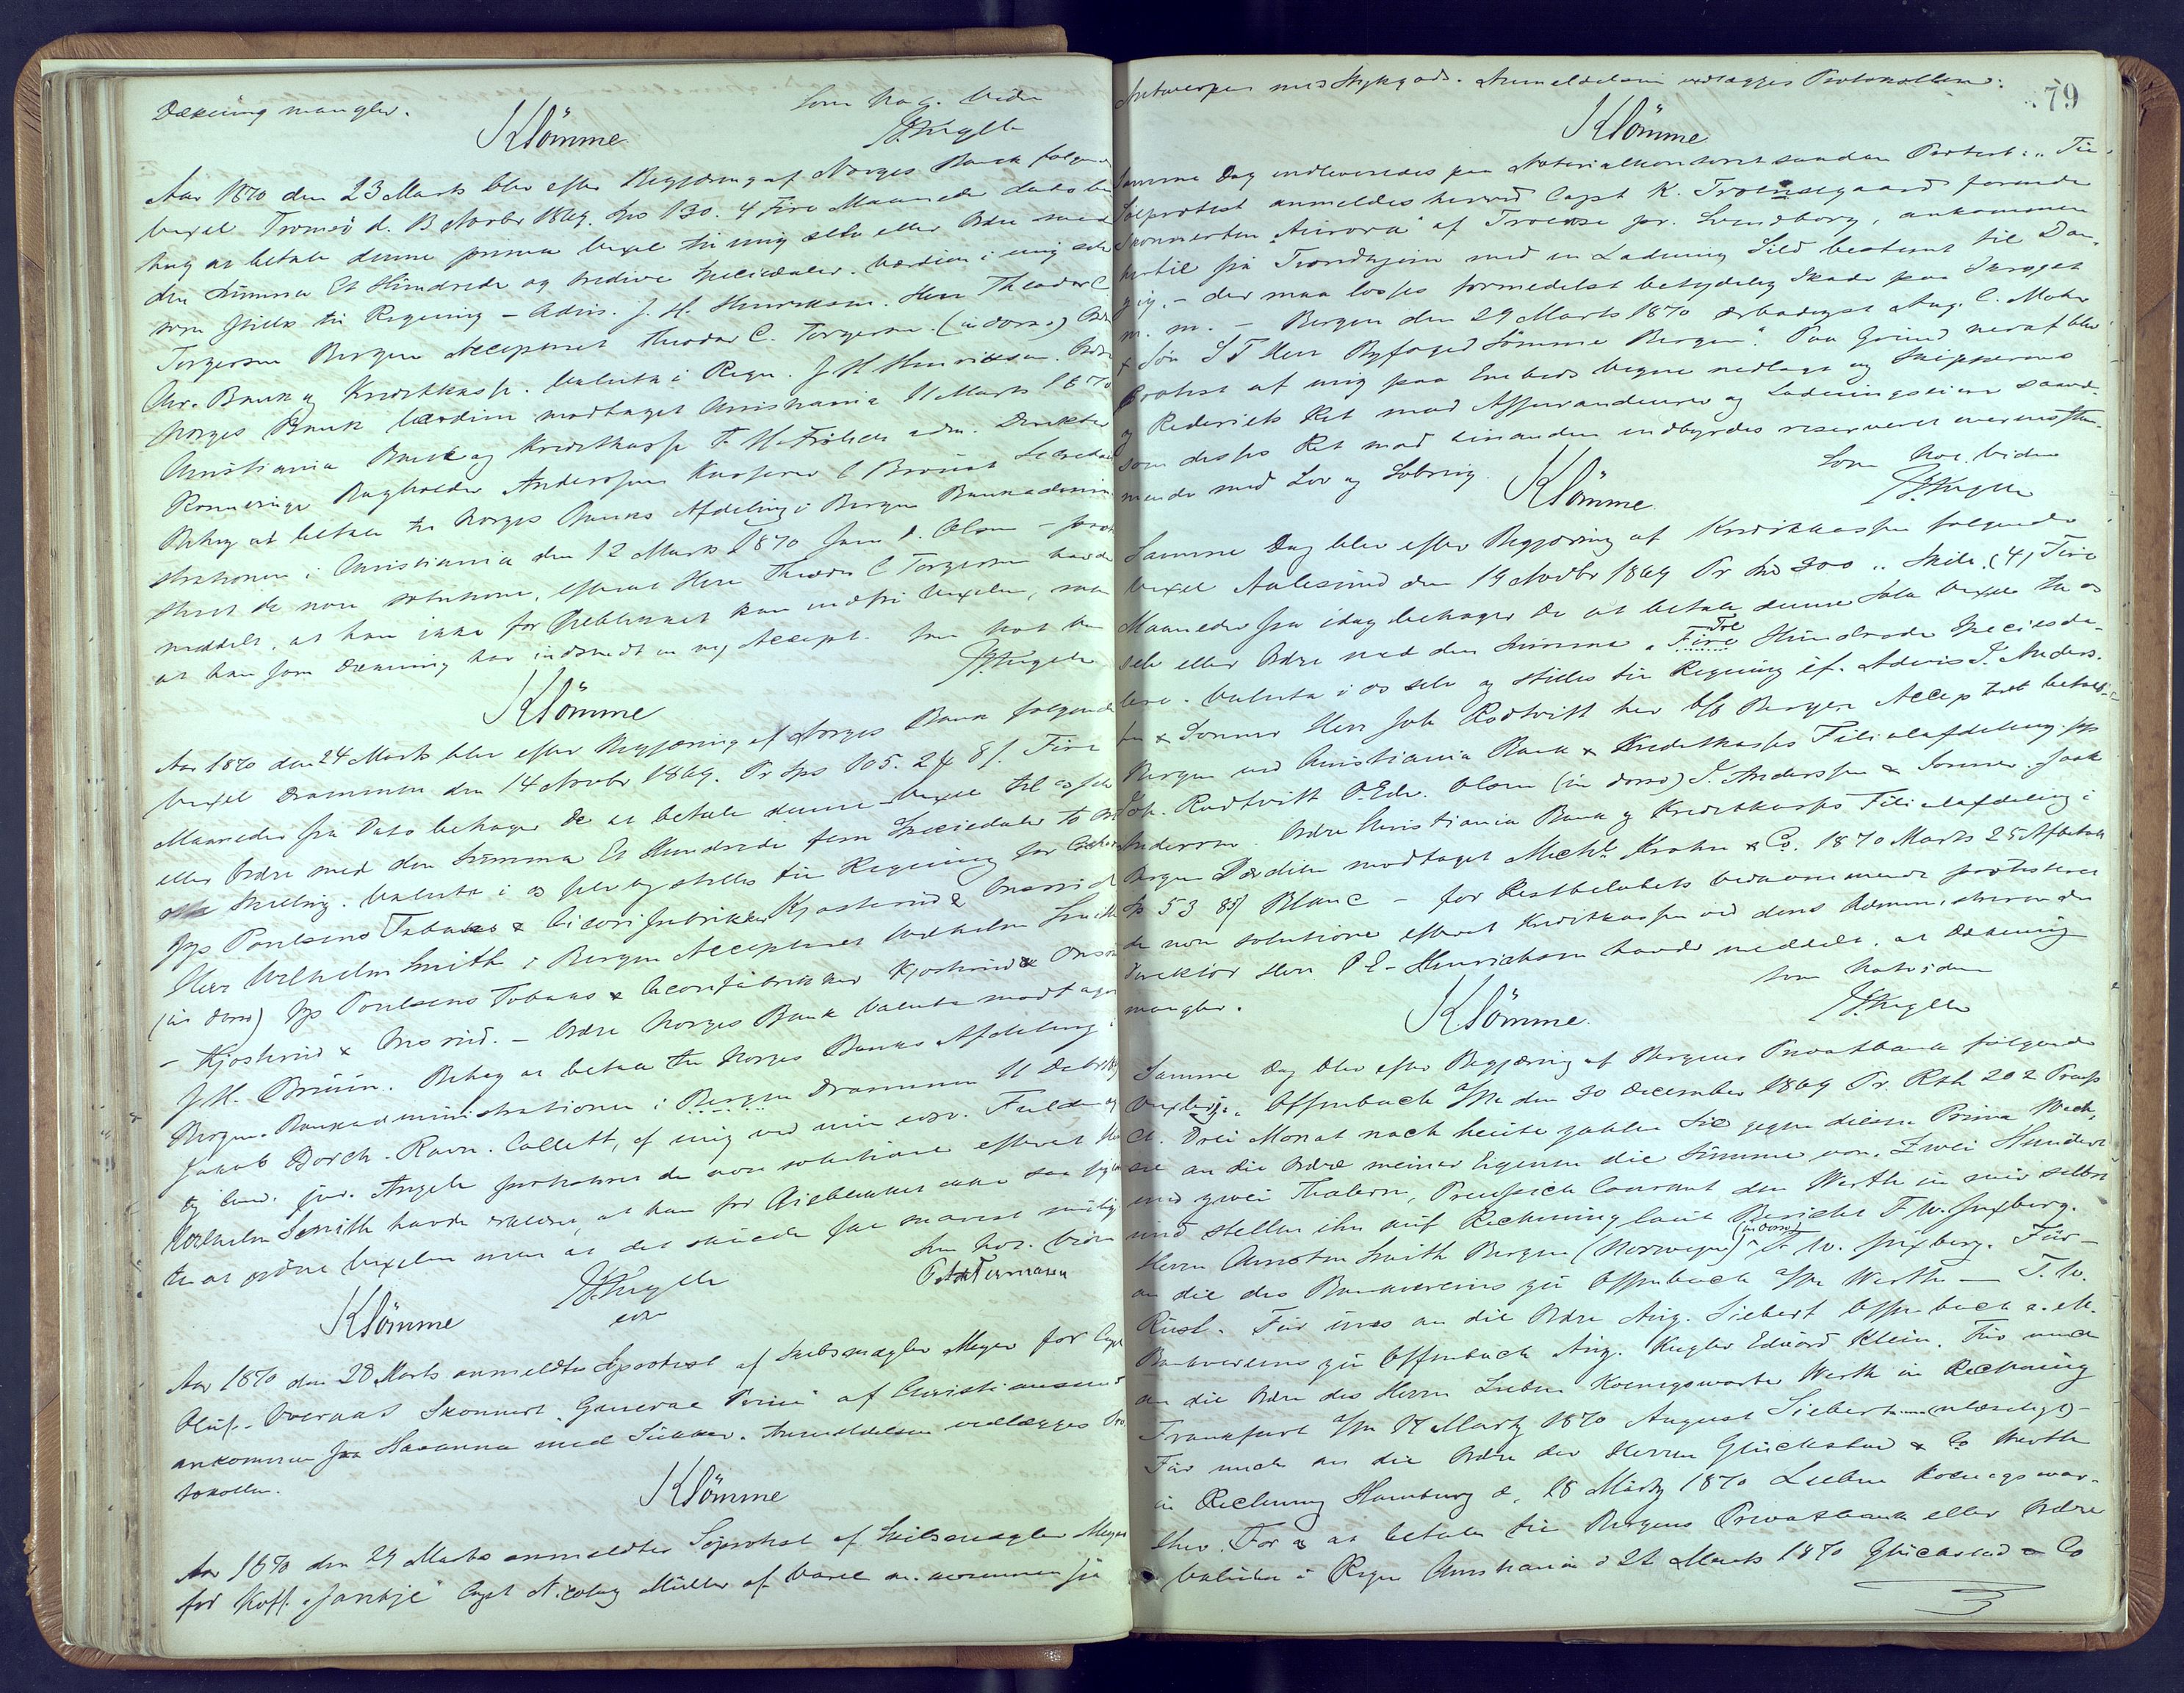 Dækning mangler.
Som Not. Vidne
Klömme
Aar 1870 den 23 Marts blev efter Begjæring af Norges Bank følgende
Vexel Tromsö d. 13 Novbr 1869. Sps 130. 4 Fire Maaneder dato be
hag at betale denne prima Vexel til mig selv eller Ordre med
den Summa Et Hundrede og tredive Speciedaler. Værdien i mig selv
som stilles til Regning - Advis. J. H. Henriksen. Herr Theodor C.
Torgersen Bergen Accepteret Theodor C. Torgersen. (in dorso) Ordre
Chr. Bank og Kreditkasse. Valuta i Regn. J H Henriksen. Ordre
Norges Bank Værdien modtaget Christiania 11 Marts 1870
Christiania Bank og Kreditkasse F. H. Frölich adm. Direktör
Bogholder Anderssen Kasserer
Behag at betale til Norges Banks Afdeling i Bergen Bankadmini
strationen i Christiania den 12 Marts 1870 - prote
steret de non solutione, efterat Herr Theodor C Torgersen havde
meddelt, at han ikke for Öieblikket kan indfri Vexelen, men
at han som Dækning har indsendt en ny Accept. Som Not. Vidne
Klömme
Aar 1870 den 24 Marts blev efter Begjæring af Norges Bank følgende
Vexel Drammen den 14 Novbr 1869. Pr Sps 105. 24 8/. Fire
Maaneder fra Dato behager De at betale denne Vexel til os selv
eller Ordre med den Summa Et Hundrede fem Speciedaler
otte Skilling. Valuta i os selv og stilles til Regning
pps Poulsens Tobaks & Cicorifabrikker Kjøsterud &
Herr Wilhelm Smith i Bergen Accepteret Wilhelm Smith
(in dorso) pps Poulsens Tobaks & Cicorifabrikker Kjøsterud &
- Kjøsterud & - Ordre Norges Bank Valuta modtaget
J. H. Bruun. Behag at betale til Norges Banks Afdeling i
Bergen. Bankadministrationen i Bergen Drammen
Jakob Borch. Ravn. Collett, af mig ved min edsv. Fuldmæg
tig Cand. jur. Angell protesteret de non solutione efterat Herr
Wilhelm Smith havde erklæret, at han for Öieblikket ikke
til at ordne Vexelen men at det skulde ske snarest muligt
Som Not. Vidne
Klömme
edsv
Aar 1870 den 28 Marts anmeldtes Söprotest af Skibsmægler Meyer for Capt
Oluf. Skonnert "General Prim" af Christianssund
ankommen fra Havanna med Sukker. Anmeldelsen vedlægges Pro
tokollen.
Klömme
Aar 1870 den 29 Marts anmeldtes Söprotest af Skibsmægler Meyer
for Koff. "Jantje" Capt Nicolay Müller af Varel ankommen fra
79
Antwerpen med Stykgods. Anmeldelsen vedlægges Protokollen.
Klömme
Samme Dag indleveredes paa Notarialkontoret saadan Protest: "Til
Söprotest anmeldes herved Capt K. Troensegaard förende
Skonnerten "Aurora" af Troense pr. Svendborg, ankommen
hertil fra Trondhjem med en Ladning Sild bestemt til Dan-
zig. - der maa losses formedelst betydelig Skade paa Skroget
m. m. - Bergen den 29 Marts 1870 ærbødigst Aug. C. Mohr
& Sön S T Herr Byfoged Lömme Bergen". Paa Grund heraf blev
Protest af mig paa Embeds Vegne nedlagt og Skipperens
og Rederiets Ret mod Assurandeurer og Ladningseiere saavel
som disses Ret mod hinanden indbyrdes reserveret overensstem-
mende med Lov og Sedvane.
Som Not. Vidne
Klömme
Samme Dag blev efter Begjæring af Kreditkassen følgende
Vexel Aalesund den 19 Novbr 1869 Pr Sps 300 " Skill. (4) Fire
Maaneder fra idag behager De at betale denne Sola Vexel til os
selv eller Ordre med den Summa " Fire Tre Hundrede Speciesda-
lere. Valuta i os selv og stilles til Regning ifl. Advis J. Anders-
sen & Sønner Herr Joh Rodtwitt her p/t Bergen Accepteret betales i
Bergen ved Christiania Bank & Kreditkasses Filialafdeling. pps
Joh. Rodtwitt P. Edv. Olsen (in dorso) J. Anderssen & Sønner. Jaak
Anderssen. Ordre Christiania Bank og Kreditkasses Filialafdeling i
Bergen Værdien modtaget Michl. Krohn & Co. 1870 Marts 25 Afbetalt
Sp 53 85/ Blanc - for Restbelöbets Vedkommende protesteret
de non solutione efterat Kreditkassen ved dens Administrerende
Direktör Herr P. E. Henrichsen havde meddelt, at Dækning
mangler.
Som Not. Vidne
Klömme.
Samme Dag blev efter Begjæring af Bergens Privatbank følgende
Vexel: "Offenbach a/M den 30 December 1869 Pr. Rth 202 Preuss
Ct. Drei Monat nach heute zahlen Sie gegen diesen Prima Wech-
sel an die Ordre meiner Eigenen die Summe von Zwei Hundert
und zwei Thalern, Preussisch Courant den Werth in mir selbst
und stellen ihn auf Rechnung laut Bericht F. W. Juxberg.
Herrn Christen Smith Bergen (Norwegen) (in dorso) F. W. Juxberg. Für -
an die des Bankvereins zu Offenbach a/M Werth - F. W.
Rüsl. Für uns an die Ordre Aug. Siebert Offenbach a. M.
Bankvereins zu Offenbach Aug. Kugler Eduard Klein. Für mich
an die Ordre des Herrn Lieben Koenigswarter Werth in Rechnung
Frankfurt a/m 17 Märtz 1870 August Siebert (ulæseligt) -
Für mich an die Ordre der Herren Glückstad & Co Werth
in Rechnung Hamburg d. 18 Märtz 1870 Lieben Koenigswar-
ther. For os at betale til Bergens Privatbank eller Ordre
Valuta i Regn Christiania d 22 Marts 1870 Glückstad & Co